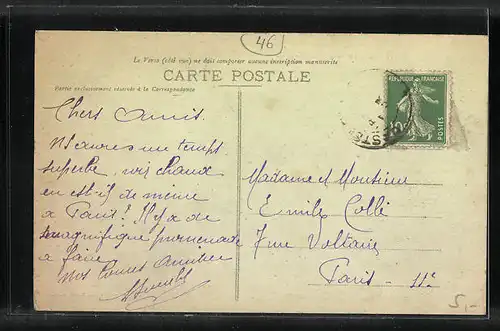 46
Le Verso (côté vue) ne doit comporter aucune inscription manuscrite
CARTE POSTALE
Partie exclusivement réservée à la Correspondance
RÉPUBLIQUE FRANÇAISE
10
POSTES
Chers amis.
un temps
superbe, chaud
en est-il de même
à Paris? Il y a de
magnifique promenade
à faire
Nos bonnes amitiés
Madame et Monsieur
Emile Collé
7 rue Voltaire
Paris - 11e
5,-